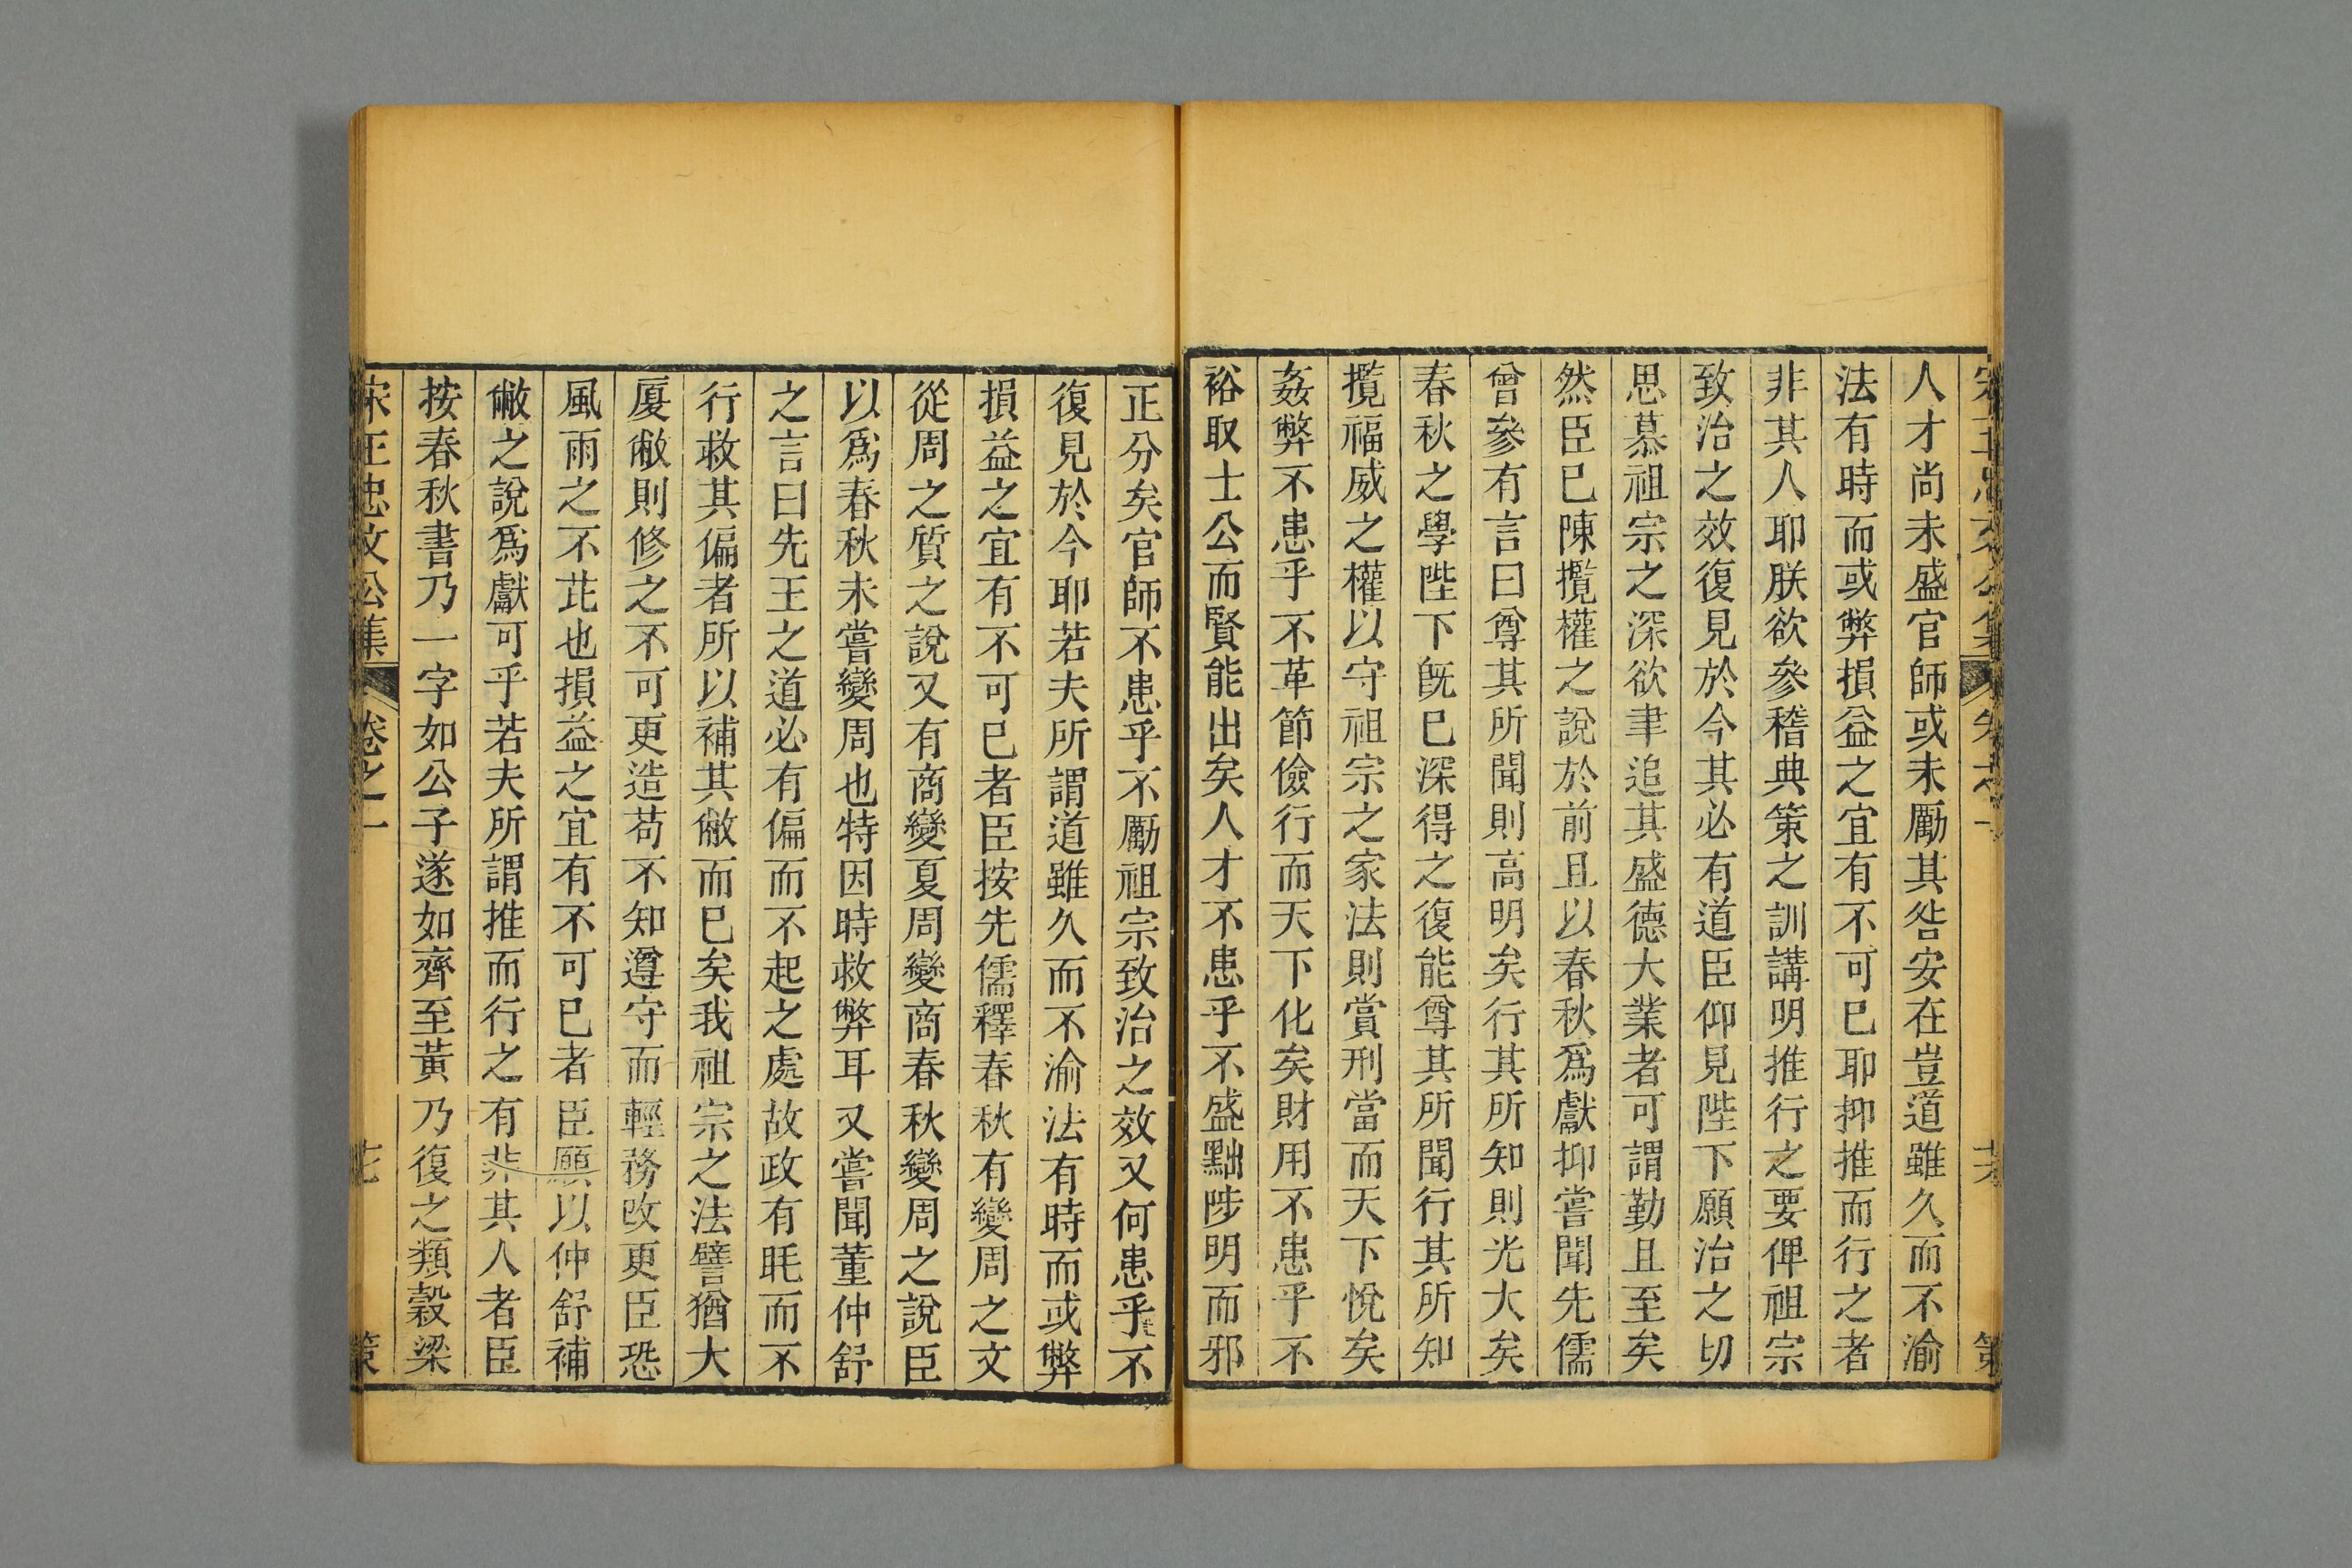 人才尚未盛官師或未勵其咎安在豈道雖久而不渝
法有時而或弊損益之宜有不可已耶抑推而行之者
非其人耶朕欲參稽典策之訓講明推行之要俾祖宗
致治之效復見於今其必有道臣仰見陛下願治之切
思慕祖宗之深欲聿追其盛德大業者可謂勤且至矣
然臣已陳攬權之說於前且以春秋爲獻抑嘗聞先儒
曾參有言曰尊其所聞則高明矣行其所知則光大矣
春秋之學陛下旣已深得之復能尊其所聞行其所知
攬福威之權以守祖宗之家法則賞刑當而天下悅矣
姦弊不患乎不革節儉行而天下化矣財用不患乎不
裕取士公而賢能出矣人才不患乎不盛黜陟明而邪
正分矣官師不患乎不勵祖宗致治之效又何患乎不
復見於今耶若夫所謂道雖久而不渝法有時而或弊
損益之宜有不可已者臣按先儒釋春秋有變周之文
從周之質之說又有商變夏周變商春秋變周之說臣
以爲春秋未嘗變周也特因時救弊耳又嘗聞董仲舒
之言曰先王之道必有偏而不起之處故政有眊而不
行救其偏者所以補其敝而已矣我祖宗之法譬猶大
厦敝則修之不可更造苟不知遵守而輕務改更臣恐
風雨之不芘也損益之宜有不可已者臣願以仲舒補
敝之說爲獻可乎若夫所謂推而行之有非其人者臣
按春秋書乃一字如公子遂如齊至黃乃復之類穀梁
宋王忠文公集 卷之一 策